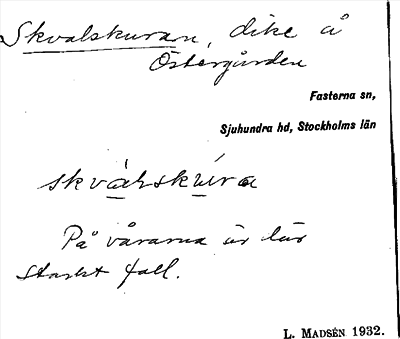 Skvalskuran, dike å
Östergården
Fasterna sn,
Sjuhundra hd, Stockholms län
På vårarna är där
starkt fall.
L. MADSÉN 1932.